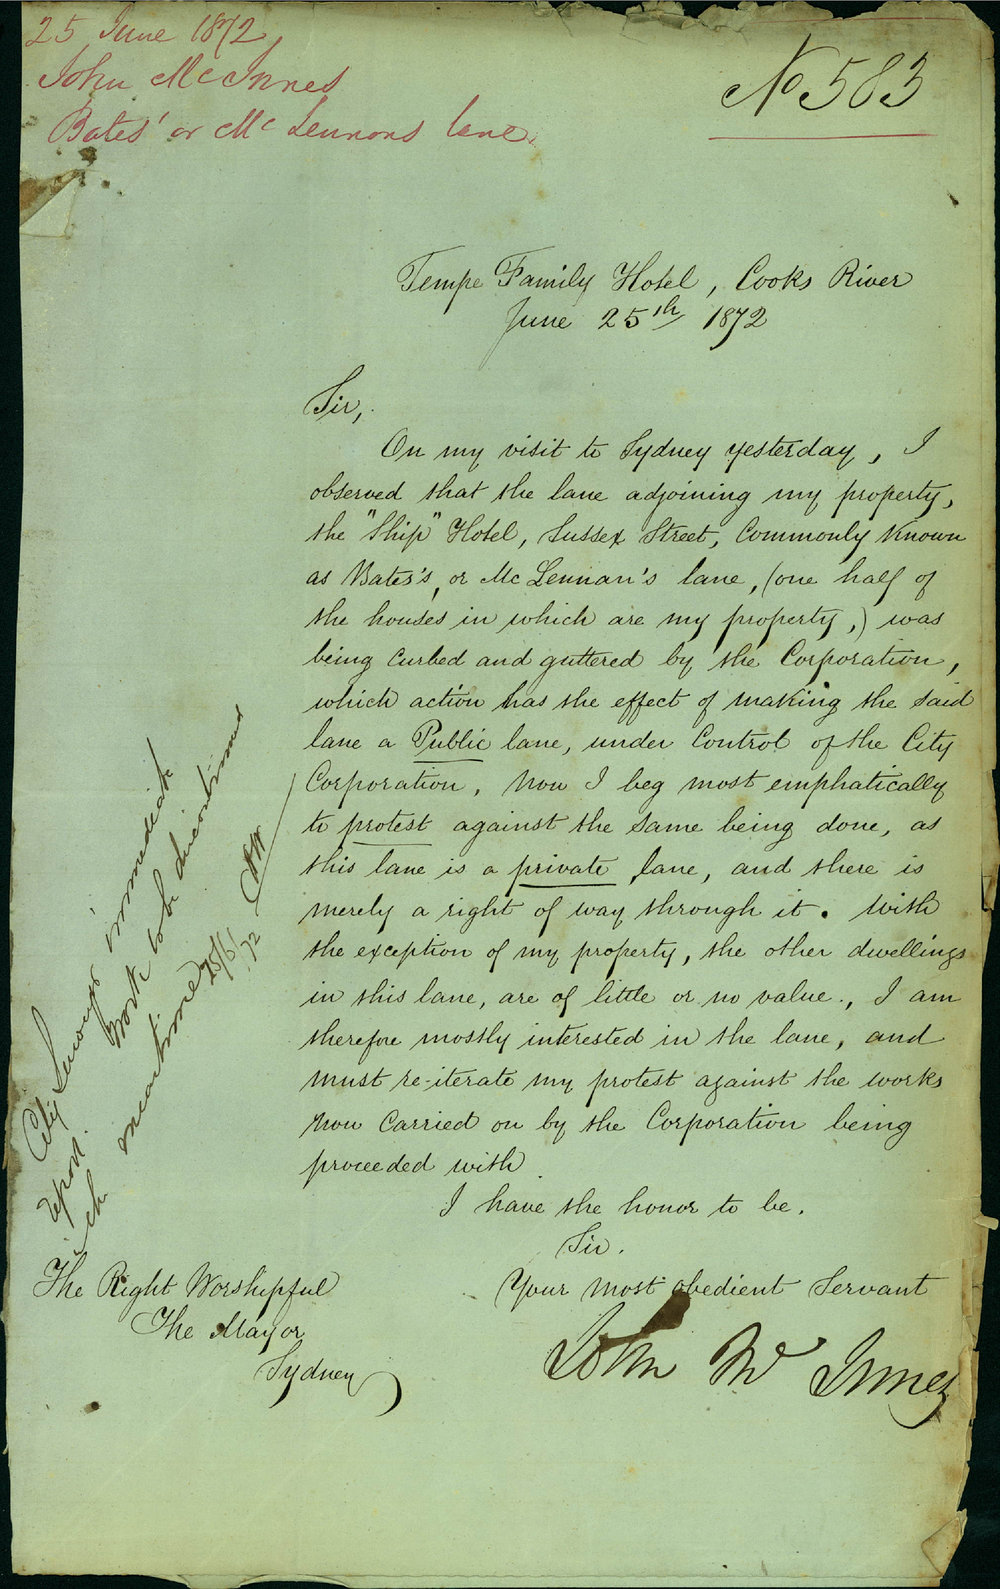 25 June 1872
John McInnes
Bates' or McLennons lane
No 583
Tempe Family Hotel, Cooks River
June 25th 1872
Sir,
On my visit to Sydney yesterday, I
observed that the lane adjoining my property,
the "Ship" Hotel, Sussex Street, Commonly Known
as Bates's, or McLennan's lane, (one half of
the houses in which are my property,) was
being curbed and guttered by the Corporation,
which action has the effect of making the said
lane a Public lane, under Control of the City
Corporation, now I beg most emphatically
to protest against the same being done, as
this lane is a private lane, and there is
merely a right of way through it. With
the exception of my property, the other dwellings
in this lane, are of little or no value., I am
therefore mostly interested in the lane, and
must re-iterate my protest against the works
now Carried on by the Corporation being
proceeded with
I have the honor to be.
Sir.
Your most obedient Servant
John Mc Innes
The Right Worshipful
The Mayor
Sydney
City Surveyor immediate
report. Work to be discontinued
meantime 25/6/72